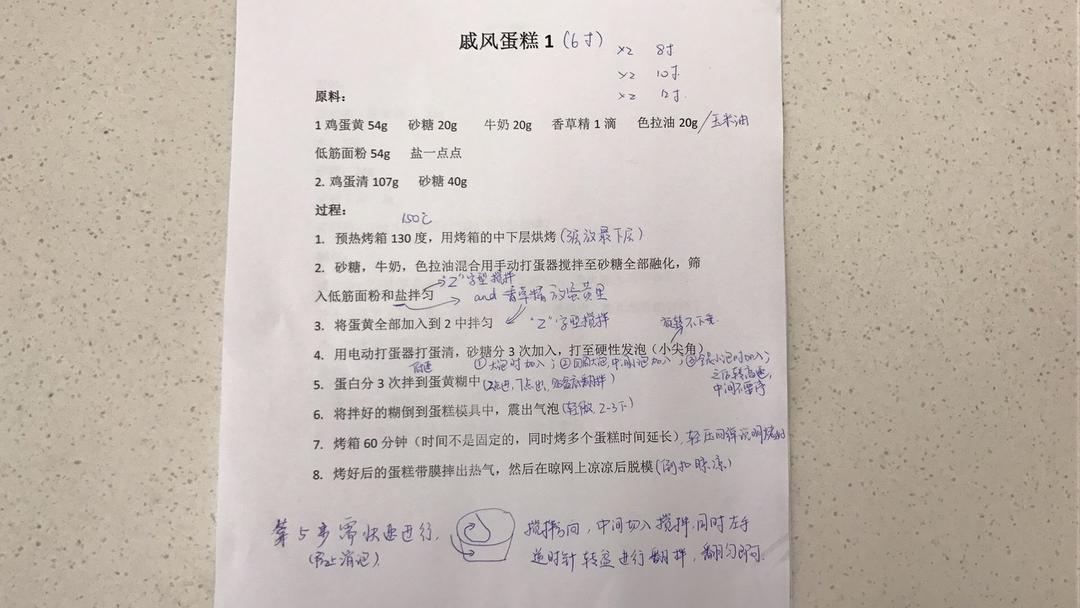 戚风蛋糕 1 (6寸)
×2 8寸
×2 10寸
×2 12寸
原料：
1 鸡蛋黄 54g 砂糖 20g 牛奶 20g 香草精 1 滴 色拉油 20g/玉米油
低筋面粉 54g 盐一点点
2. 鸡蛋清 107g 砂糖 40g
过程：
150℃
1. 预热烤箱 130 度，用烤箱的中下层烘烤(放最下层)
2. 砂糖，牛奶，色拉油混合用手动打蛋器搅拌至砂糖全部融化，筛
"Z"字型搅拌
入低筋面粉和盐拌匀 and 香草精放蛋黄里
3. 将蛋黄全部加入到 2 中拌匀 "Z"字型搅拌
4. 用电动打蛋器打蛋清，砂糖分 3 次加入，打至硬性发泡（小尖角）
①大泡时加入；②中小泡加入；③小泡时加入；
之后转高速，
5. 蛋白分 3 次拌到蛋黄糊中
中间不要停
6. 将拌好的糊倒到蛋糕模具中，震出气泡(轻做, 2-3下)
7. 烤箱 60 分钟（时间不是固定的，同时烤多个蛋糕时间延长）, 轻压回弹说明烤好
8. 烤好后的蛋糕带膜摔出热气，然后在晾网上凉凉后脱模(倒扣晾凉)
第5步需快速进行,
(防止消泡)
搅拌方向, 中间切入搅拌, 同时左手
逆时针转盆进行翻拌, 翻匀即可.